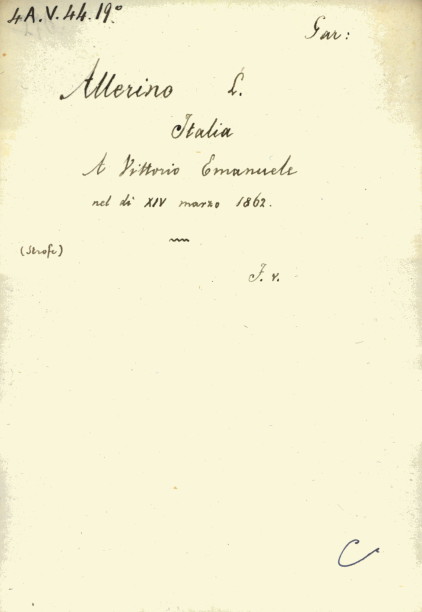 4A.V.44.19°
Gar:
Allerino L.
Italia
A Vittorio Emanuele
nel dì XIV marzo 1862.
(Strofe)
F. v.
C